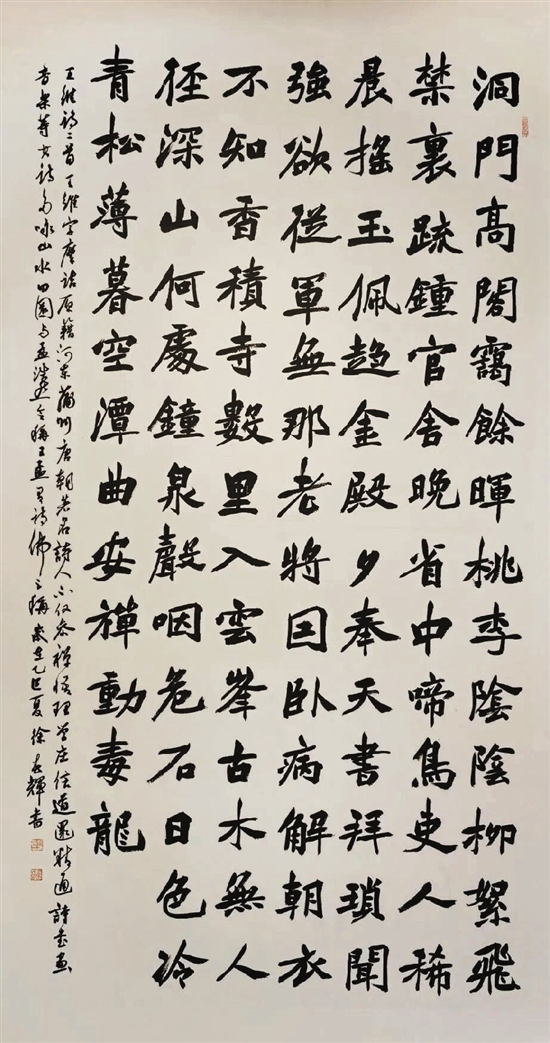 洞門高閣靄餘暉桃李陰陰柳絮飛
禁裏疏鍾官舍晚省中啼鳥吏人稀
晨搖玉佩趨金殿夕奉天書拜瑣聞
強欲從軍無那老將因臥病解朝衣
不知香積寺數里入雲峯古木無人
徑深山何處鐘泉聲咽危石日色冷
青松薄暮空潭曲安禪動毒龍
王維詩二首王維字摩詰原籍河東蒲州唐朝著名詩人不仅参禪悟理学庄信道還精通詩書画
音樂等其詩多咏山水田園与孟浩然合稱王孟有詩佛之稱歲在乙巳夏徐友輝書